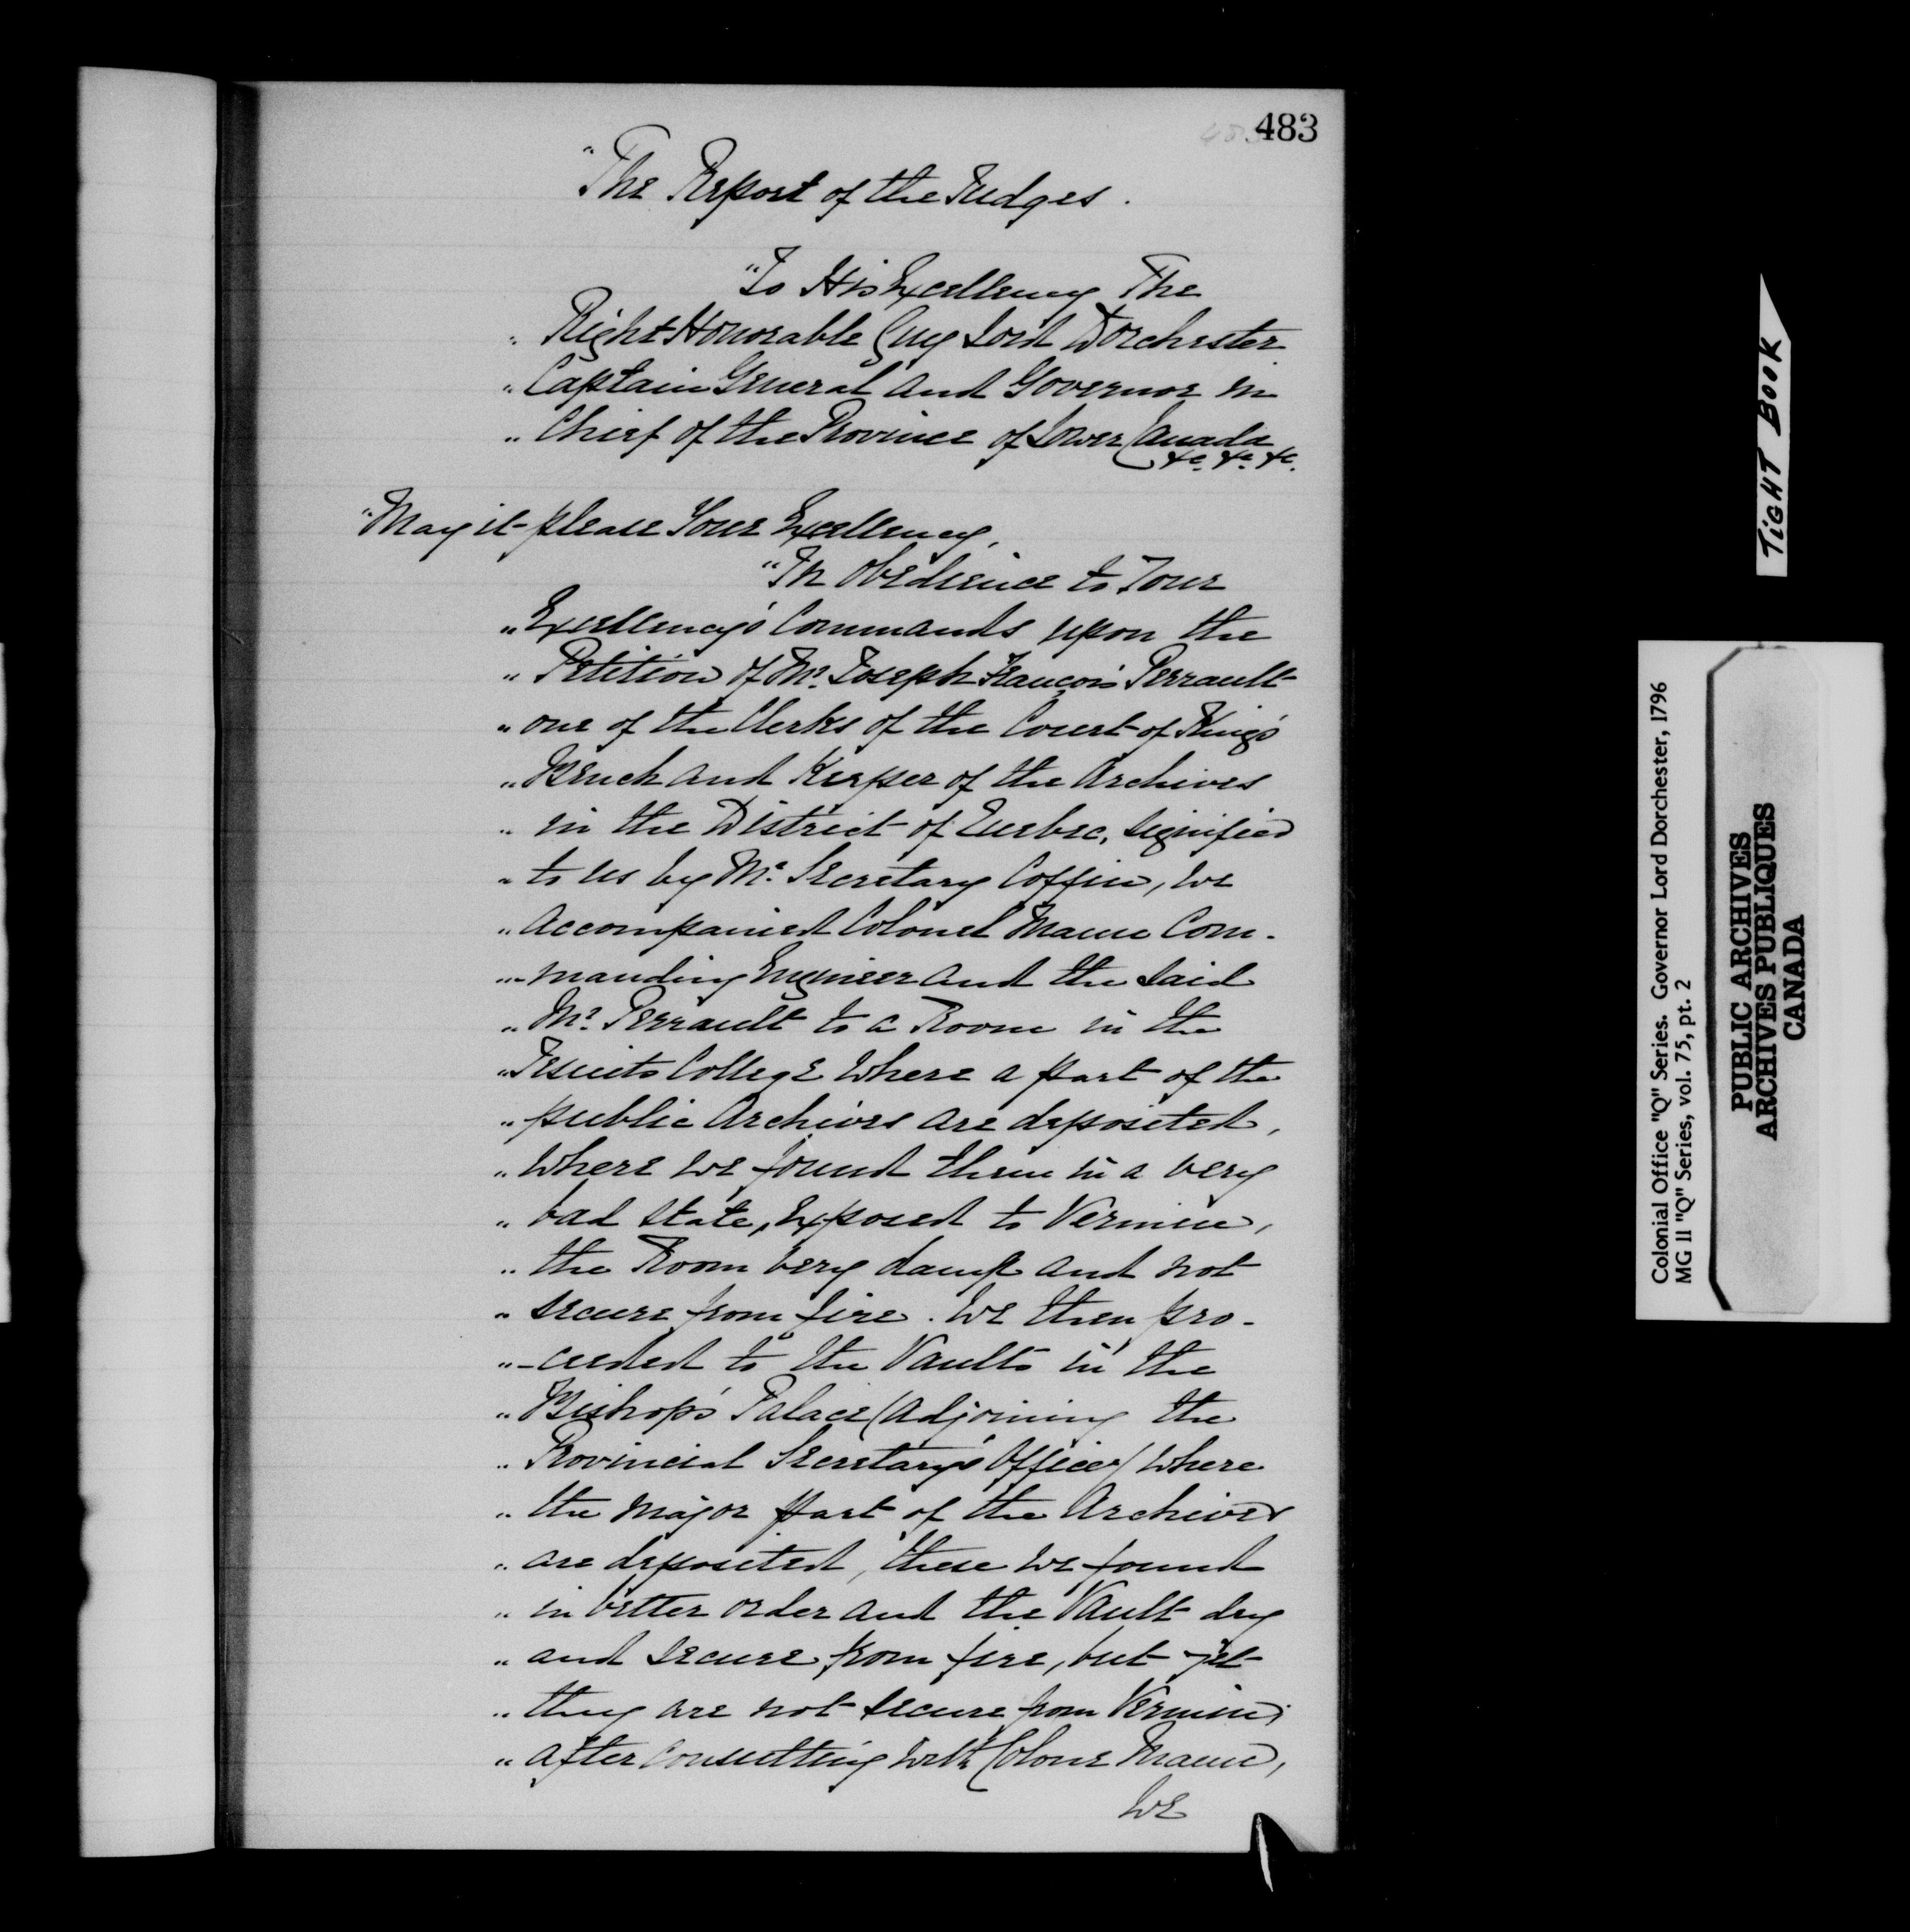 483
"The Report of the Judges.
"To His Excellency The
" Right Honorable Guy Lord Dorchester
" Captain General and Governor in
" Chief of the Province of Lower Canada
&c. &c. &c.
"May it please Your Excellency,
"In Obedience to Your
" Excellency's Commands upon the
" Petition of Mr. Joseph François Perrault
" one of the Clerks of the Court of King's
" Bench and Keeper of the Archives
" in the District of Quebec, signified
" to us by Mr. Secretary Coffin, we
" accompanied Colonel Mann Com-
"-manding Engineer and the said
" Mr. Perrault to a Room in the
" Jesuits College where a part of the
" public Archives are deposited,
" where we found them in a very
" bad state, exposed to Vermin,
" the Room very damp and not
" secure from fire. We then pro-
"-ceeded to the Vaults in the
" Bishop's Palace (adjoining the
" Provincial Secretary's Office) where
" the major part of the Archives
" are deposited, these we found
" in better order and the Vault dry
" and secure from fire, but yet
" they are not secure from Vermin;
" after consulting with Colone Mann,
We
TIGHT BOOK
Colonial Office "Q" Series. Governor Lord Dorchester, 1796
MG 11 "Q" Series, vol. 75, pt. 2
PUBLIC ARCHIVES
ARCHIVES PUBLIQUES
CANADA